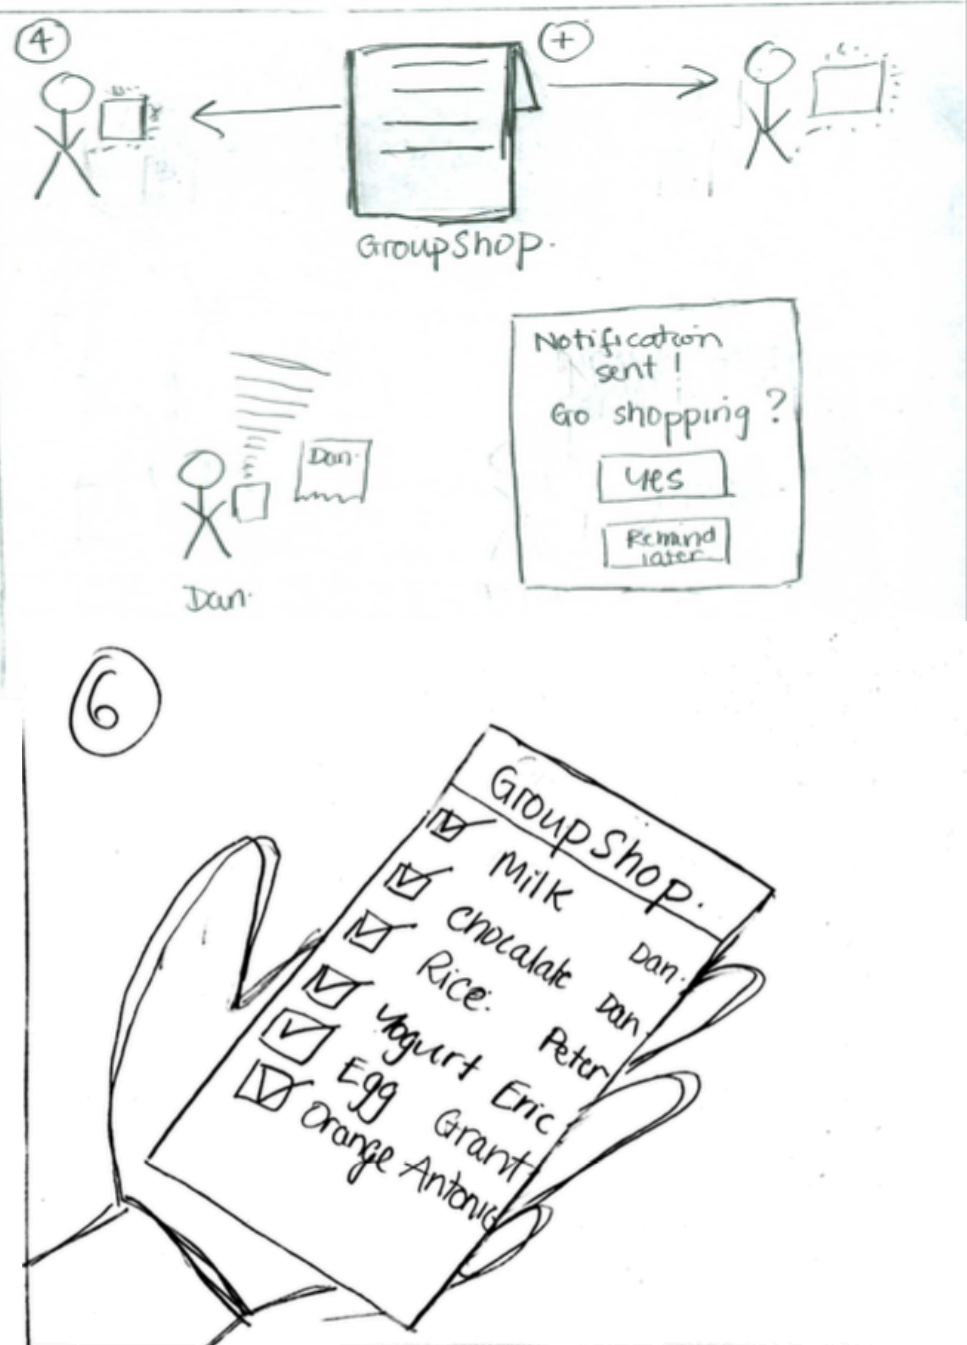 4
+
GroupShop.
Notification
sent!
Go shopping?
yes
Remind
later
Dan.
Dan.
6
GroupShop.
Milk Dan.
Chocalate Dan
Rice. Peter
Yogurt Eric
Egg Grant
Orange Antonio